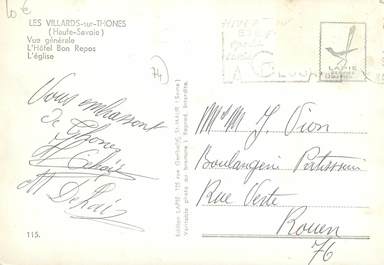 10 €
LES VILLARDS-sur-THONES
(Haute-Savoie)
Vue générale
L'Hôtel Bon Repos
L'église
(74)
Vous embrassent
de Thones
M
115.
Edition LAPIE
Véritable photo au bromure) Reprod. interdite.
LAPIE
M et Mme J. Vion
Boulangerie Patisserie
Rue Verte
Rouen
76